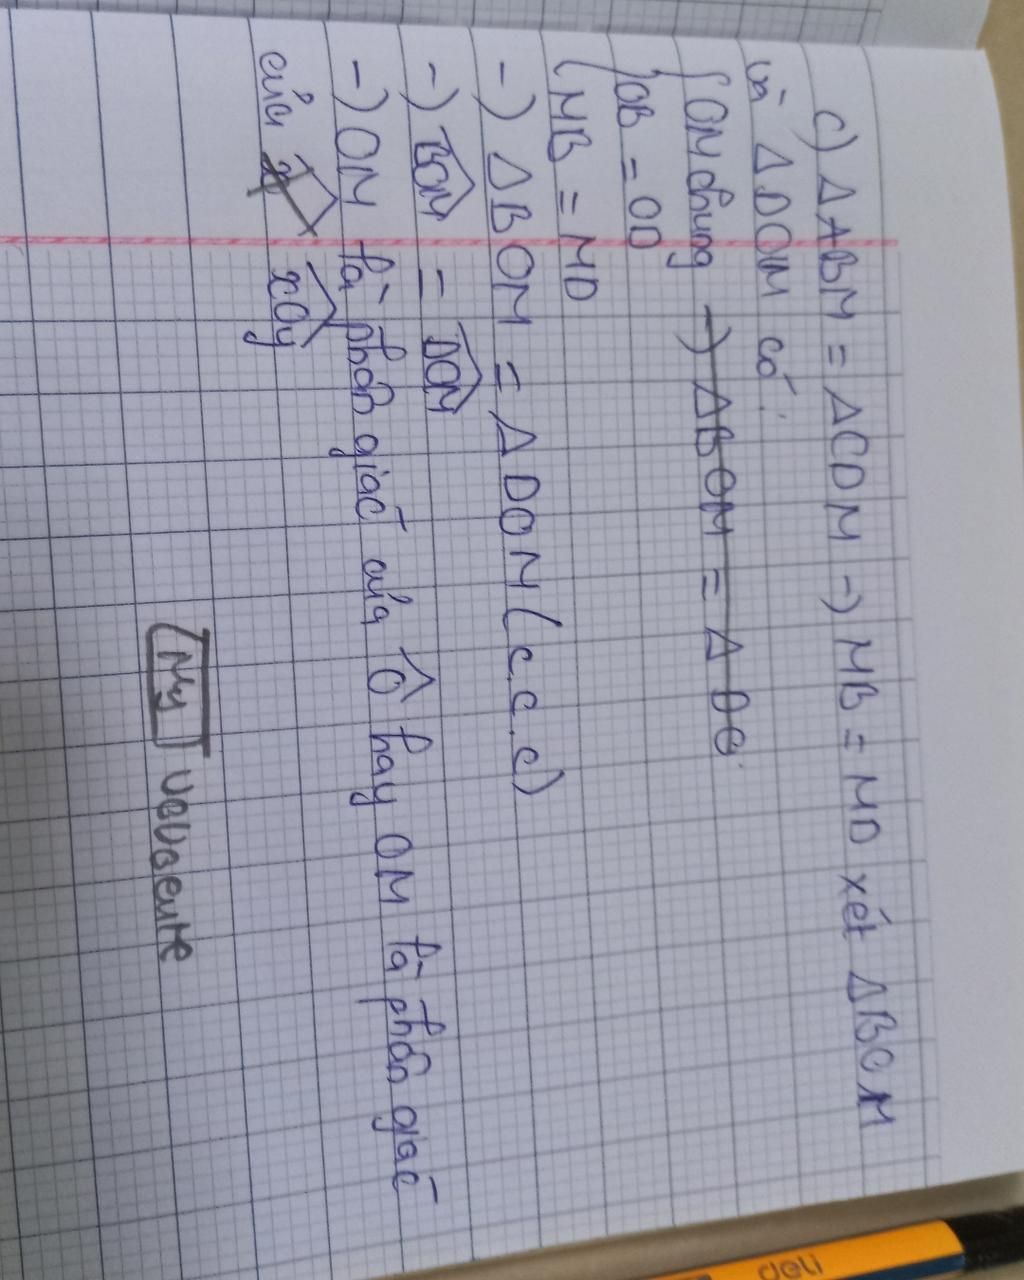 c) ΔABM = ΔCDM -) MB = MD xét ΔBOM
và ΔDOM có:
OM chung -) ΔBOM = Δ DO
OB = OD
MB = MD
-) ΔBOM = ΔDOM (c.c.c)
-) BOM = DOM
-) OM là phân giác của Ô hay OM là phân giác
của xOy
My
deli